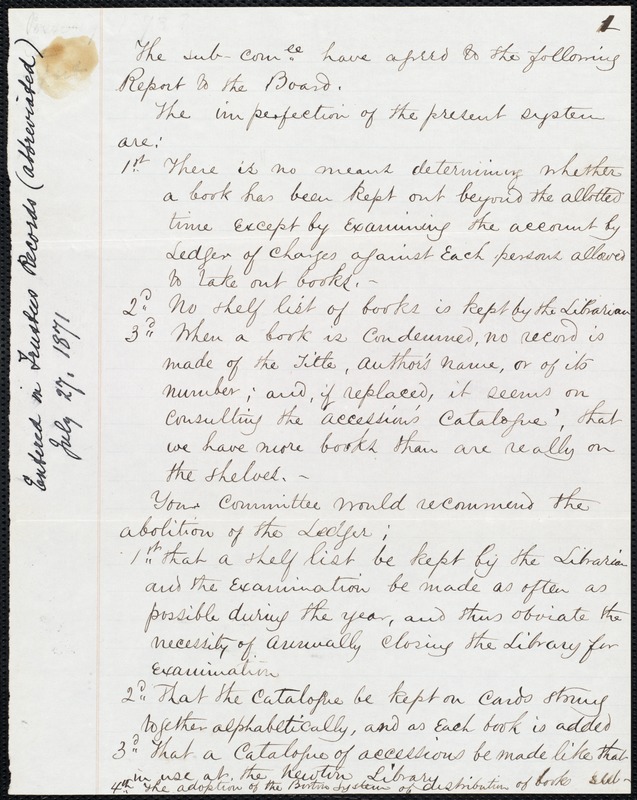 1
The sub-com.ee have agreed to the following
Report to the Board.
The imperfection of the present system
are:
1st There is no means determining whether
a book has been kept out beyond the allotted
time except by examining the account by
Ledger of charges against each person allowed
to take out books. -
2d No shelf list of books is kept by the Librarian
3d When a book is condemned, no record is
made of the Title, author's name, or of its
number; and, if replaced, it seems on
consulting the 'accession's Catalogue', that
we have more books than are really on
the shelves. -
Your Committee would recommend the
abolition of the Ledger;
1st that a shelf list be kept by the Librarian
and the Examination be made as often as
possible during the year, and thus obviate the
necessity of annually closing the Library for
Examination
2d That the Catalogue be kept on cards strung
together alphabetically, and as each book is added
3d That a Catalogue of accessions be made like that
in use at the Newton Library
4th The adoption of the Boston System of distribution of book
Entered in Trustees Records (abbreviated)
July 27, 1871